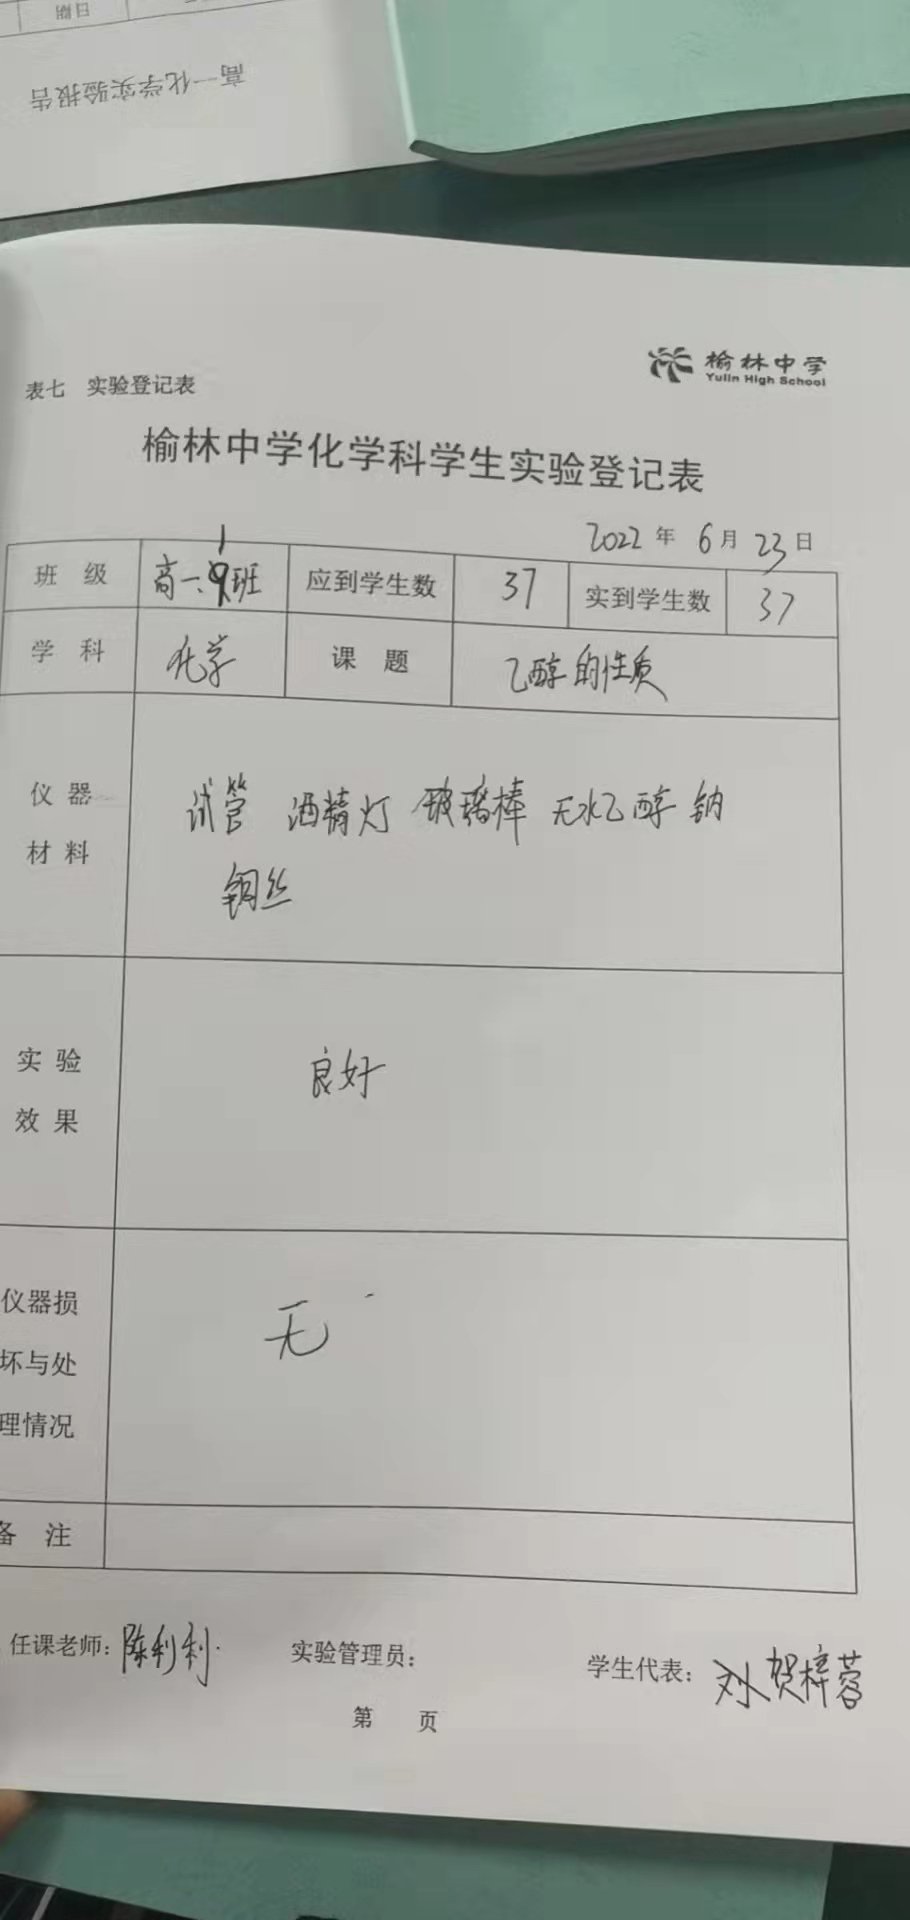 日期
高一化学实验报告
表七 实验登记表
榆林中学
Yulin High School
榆林中学化学科学生实验登记表
2022 年 6 月 23 日
班 级 高一.1班 应到学生数 37 实到学生数 37
学 科 化学 课 题 乙醇的性质
仪 器
材 料
试管 酒精灯 玻璃棒 无水乙醇 钠
铜丝
实 验
效 果
良好
仪器损
坏与处
理情况
无
备 注
任课老师: 陈利利 实验管理员: 学生代表: 刘贺梓蓉
第 页